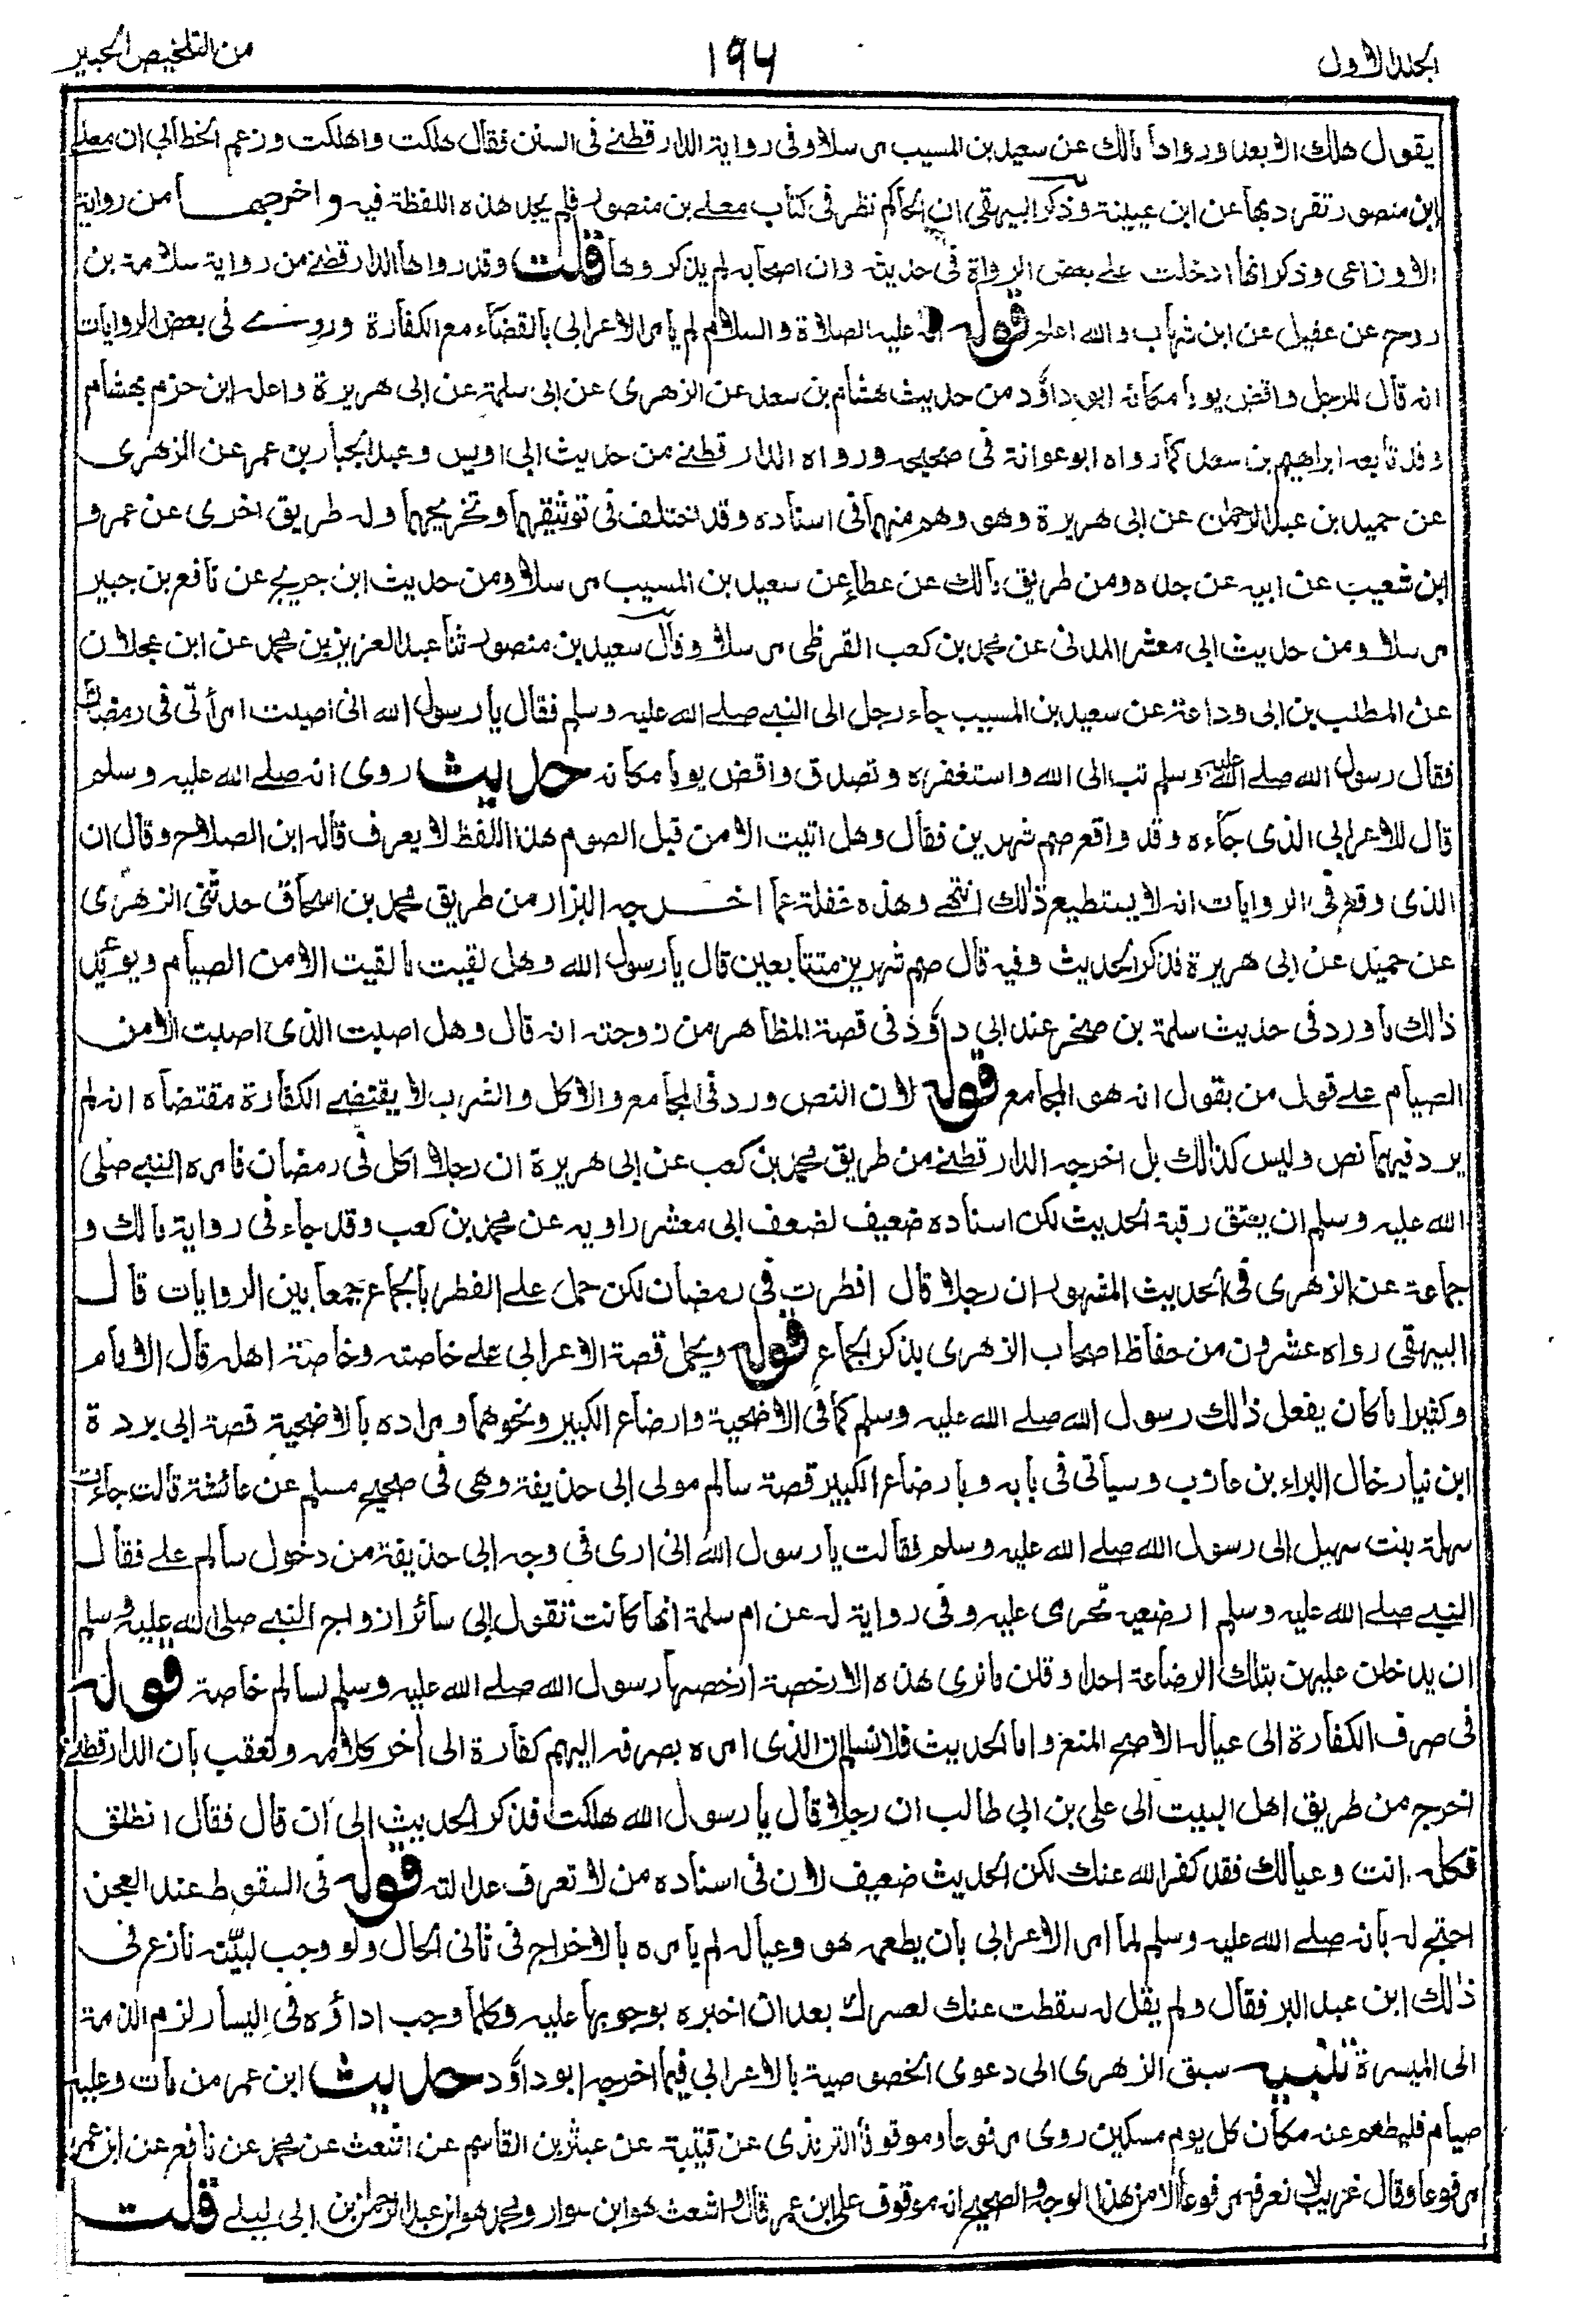 الجلد الاول
١٩٦
من التلخيص الحبير
يقول هلك الابعد ورواه مالك عن سعيد بن المسيب مرسلا وفى رواية الدارقطنے فى السنن فقال هلكت واهلكت وزعم الخطابى ان معلے
ابن منصور تفرد بها عن ابن عيينة وذكر البيهقى ان الحاكم نظر فى كتاب معلے بن منصور فلم يجد هذه اللفظة فيه واخرجها من رواية
الاوزاعى وذكر انها ادخلت علے بعض الرواة فى حديثه وان اصحابه لم يذكروها قلت وقد رواها الدارقطنے من رواية سلامة بن
روح عن عقيل عن ابن شهاب والله اعلم قوله انه عليه الصلاة والسلام لم يأمر الاعرابى بالقضاء مع الكفارة وروے فى بعض الروايات
انه قال للرجل واقض يوما مكانه ابو داؤد من حديث هشام بن سعد عن الزهرى عن ابى سلمة عن ابى هريرة واعله ابن حزم بهشام
وقد تابعه ابراهيم بن سعد كما رواه ابو عوانة فى صحيحه ورواه الدارقطنے من حديث ابى اويس وعبد الجبار بن عمر عن الزهرى
عن حميد بن عبد الرحمن عن ابى هريرة وهو وهم منهما فى اسناده وقد اختلف فى توثيقهما وتجريحهما وله طريق اخرى عن عمرو
ابن شعيب عن ابيه عن جده ومن طريق مالك عن عطاء عن سعيد بن المسيب مرسلا ومن حديث ابن جريج عن نافع بن جبير
مرسلا ومن حديث ابى معشر المدنى عن محمد بن كعب القرظى مرسلا وقال سعيد بن منصور ثنا عبد العزيز بن محمد عن ابن عجلان
عن المطلب بن ابى وداعة عن سعيد بن المسيب جاء رجل الى النبى صلے الله عليه وسلم فقال يا رسول الله انى اصبت امرأتى فى رمضان
فقال رسول الله صلے الله عليه وسلم تب الى الله واستغفره وتصدق واقض يوما مكانه حديث روى انه صلے الله عليه وسلم
قال للاعرابى الذى جاءه وقد واقع صم شهرين فقال وهل اتيت الا من قبل الصوم هذا اللفظ لا يعرف قاله ابن الصلاح وقال ان
الذى وقع فى الروايات انه لا يستطيع ذالك انتهے وهذه غفلة عما اخرجه البزار من طريق محمد بن اسحاق حدثنى الزهرى
عن حميد عن ابى هريرة فذكر الحديث وفيه قال صم شهرين متتابعين قال يا رسول الله وهل لقيت ما لقيت الا من الصيام ويؤيد
ذالك ما ورد فى حديث سلمة بن صخر عند ابى داؤد فى قصة المظاهر من زوجته انه قال وهل اصبت الذى اصبت الا من
الصيام علے قول من يقول انه هو المجامع قوله لان النص ورد فى الجامع والاكل والشرب لا يقتضے الكفارة مقتضاه انه لم
يرد فيهما نص وليس كذالك بل اخرجه الدارقطنے من طريق محمد بن كعب عن ابى هريرة ان رجلا اكل فى رمضان فامره النبى صلى
الله عليه وسلم ان يعتق رقبة الحديث لكن اسناده ضعيف لضعف ابى معشر راويه عن محمد بن كعب وقد جاء فى رواية مالك و
جماعة عن الزهرى فى الحديث المشهور ان رجلا قال افطرت فى رمضان لكن حمل علے الفطر بالجماع جمعا بين الروايات قال
البيهقى رواه عشرون من حفاظ اصحاب الزهرى بذكر الجماع قوله ويحمل قصة الاعرابى علے خاصته وخاصة اهله قال الامام
وكثيرا ما كان يفعل ذالك رسول الله صلے الله عليه وسلم كما فى الاضحية وارضاع الكبير ونحوهما ومراده بالاضحية قصة ابى بردة
ابن نيار خال البراء بن عازب وسيأتى فى بابه وبارضاع الكبير قصة سالم مولى ابى حذيفة وهى فى صحيح مسلم عن عائشة قالت جاءت
سهلة بنت سهيل الى رسول الله صلے الله عليه وسلم فقالت يا رسول الله انى ارى فى وجه ابى حذيفة من دخول سالم علے فقال
النبى صلے الله عليه وسلم ارضعيه تحرمى عليه وفى رواية له عن ام سلمة انها كانت تقول ابى سائر ازواج النبى صلى الله عليه وسلم
ان يدخلن عليهن بتلك الرضاعة احدا وقلن ما نرى هذه الا رخصة ارخصها رسول الله صلے الله عليه وسلم لسالم خاصة قوله
فى صرف الكفارة الى عياله الاصح المنع واما الحديث فلا نسلم ان الذى امره بصرفه اليهم كفارة الى أخر كلامه وتعقب بان الدارقطنے
اخرجه من طريق اهل البيت الى على بن ابى طالب ان رجلا قال يا رسول الله هلكت فذكر الحديث الى ان قال فقال انطلق
فكله انت وعيالك فقد كفر الله عنك لكن الحديث ضعيف لان فى اسناده من لا تعرف عدالته قوله فى السقوط عند العجز
احتج له بانه صلے الله عليه وسلم لما امر الاعرابى بان يطعمه هو وعياله لم يأمره بالاخراج فى ثانى الحال ولو وجب لبيّنه نازع فى
ذالك ابن عبد البر فقال ولم يقل له سقطت عنك لعسرك بعد ان اخبره بوجوبها عليه وكلما وجب اداؤه فى اليسار لزم الذمة
الى الميسرة تنبيه سبق الزهرى الى دعوى الخصوصية بالاعرابى فيما اخرجه ابو داؤد حديث ابن عمر من مات وعليه
صيام فليطعم عنه مكان كل يوم مسكين روى مرفوعا وموقوفا الترمذى عن قتيبة عن عبثر بن القاسم عن اشعث عن محمد عن نافع عن ابن عمر
مرفوعا وقال غريب لا نعرفه مرفوعا الا من هذا الوجه والصحيح انه موقوف على ابن عمر قال واشعث هو ابن سوار ومحمد هو ابن عبد الرحمن بن ابى ليلے قلت